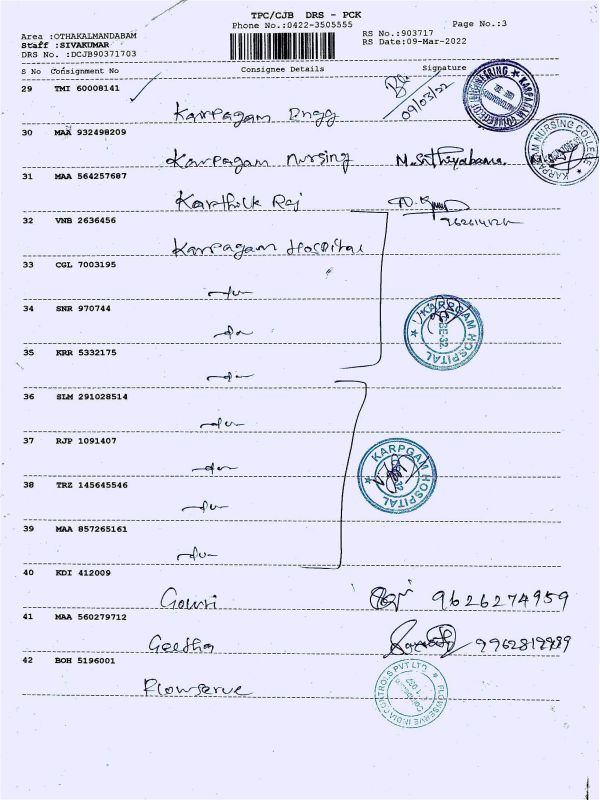 TPC/CJB DRS - PCK
Phone No.:0422-3505555
Page No.:3
Area :OTHAKALMANDABAM
RS No.:903717
Staff :SIVAKUMAR
RS Date:09-Mar-2022
DRS No. :DCJB90371703
S No Consignment No Consignee Details Signature
29 TMI 60008141
Karpagam Engg 09/03/22
30 MAA 932498209
Karpagam Nursing M. Sathiyabama
KARPAGAM NURSING COLLEGE
31 MAA 564257687
Karthik Raj
32 VNB 2636456
Karpagam Hospital
33 CGL 7003195
34 SNR 970744
KARPGAM HOSPITAL
35 KRR 5332175
36 SLM 291028514
37 RJP 1091407
KARPGAM HOSPITAL
38 TRZ 145645546
39 MAA 857265161
40 KDI 412009
Gowri 9626274959
41 MAA 560279712
Geetha
42 BOH 5196001
Flowserve
FLOWSERVE INDIA CONTROLS PVT LTD